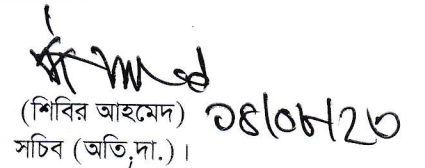 (শিবির আহমেদ) ১৪/০৮/২৩
সচিব (অতি,দা.) ।